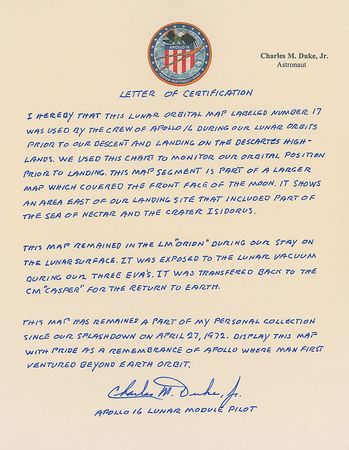 APOLLO 16
Charles M. Duke, Jr.
Astronaut
LETTER OF CERTIFICATION
I HEREBY THAT THIS LUNAR ORBITAL MAP LABELED NUMBER 17
WAS USED BY THE CREW OF APOLLO 16 DURING OUR LUNAR ORBITS
PRIOR TO OUR DESCENT AND LANDING ON THE DESCARTES HIGH-
LANDS. WE USED THIS CHART TO MONITOR OUR ORBITAL POSITION
PRIOR TO LANDING. THIS MAP SEGMENT IS PART OF A LARGER
MAP WHICH COVERED THE FRONT FACE OF THE MOON. IT SHOWS
AN AREA EAST OF OUR LANDING SITE THAT INCLUDED PART OF
THE SEA OF NECTAR AND THE CRATER ISIDORUS.
THIS MAP REMAINED IN THE LM "ORION" DURING OUR STAY ON
THE LUNAR SURFACE. IT WAS EXPOSED TO THE LUNAR VACUUM
DURING OUR THREE EVA'S. IT WAS TRANSFERED BACK TO THE
CM "CASPER" FOR THE RETURN TO EARTH.
THIS MAP HAS REMAINED A PART OF MY PERSONAL COLLECTION
SINCE OUR SPLASHDOWN ON APRIL 27, 1972. DISPLAY THIS MAP
WITH PRIDE AS A REMEMBRANCE OF APOLLO WHERE MAN FIRST
VENTURED BEYOND EARTH ORBIT.
Charles M. Duke, Jr.
APOLLO 16 LUNAR MODULE PILOT